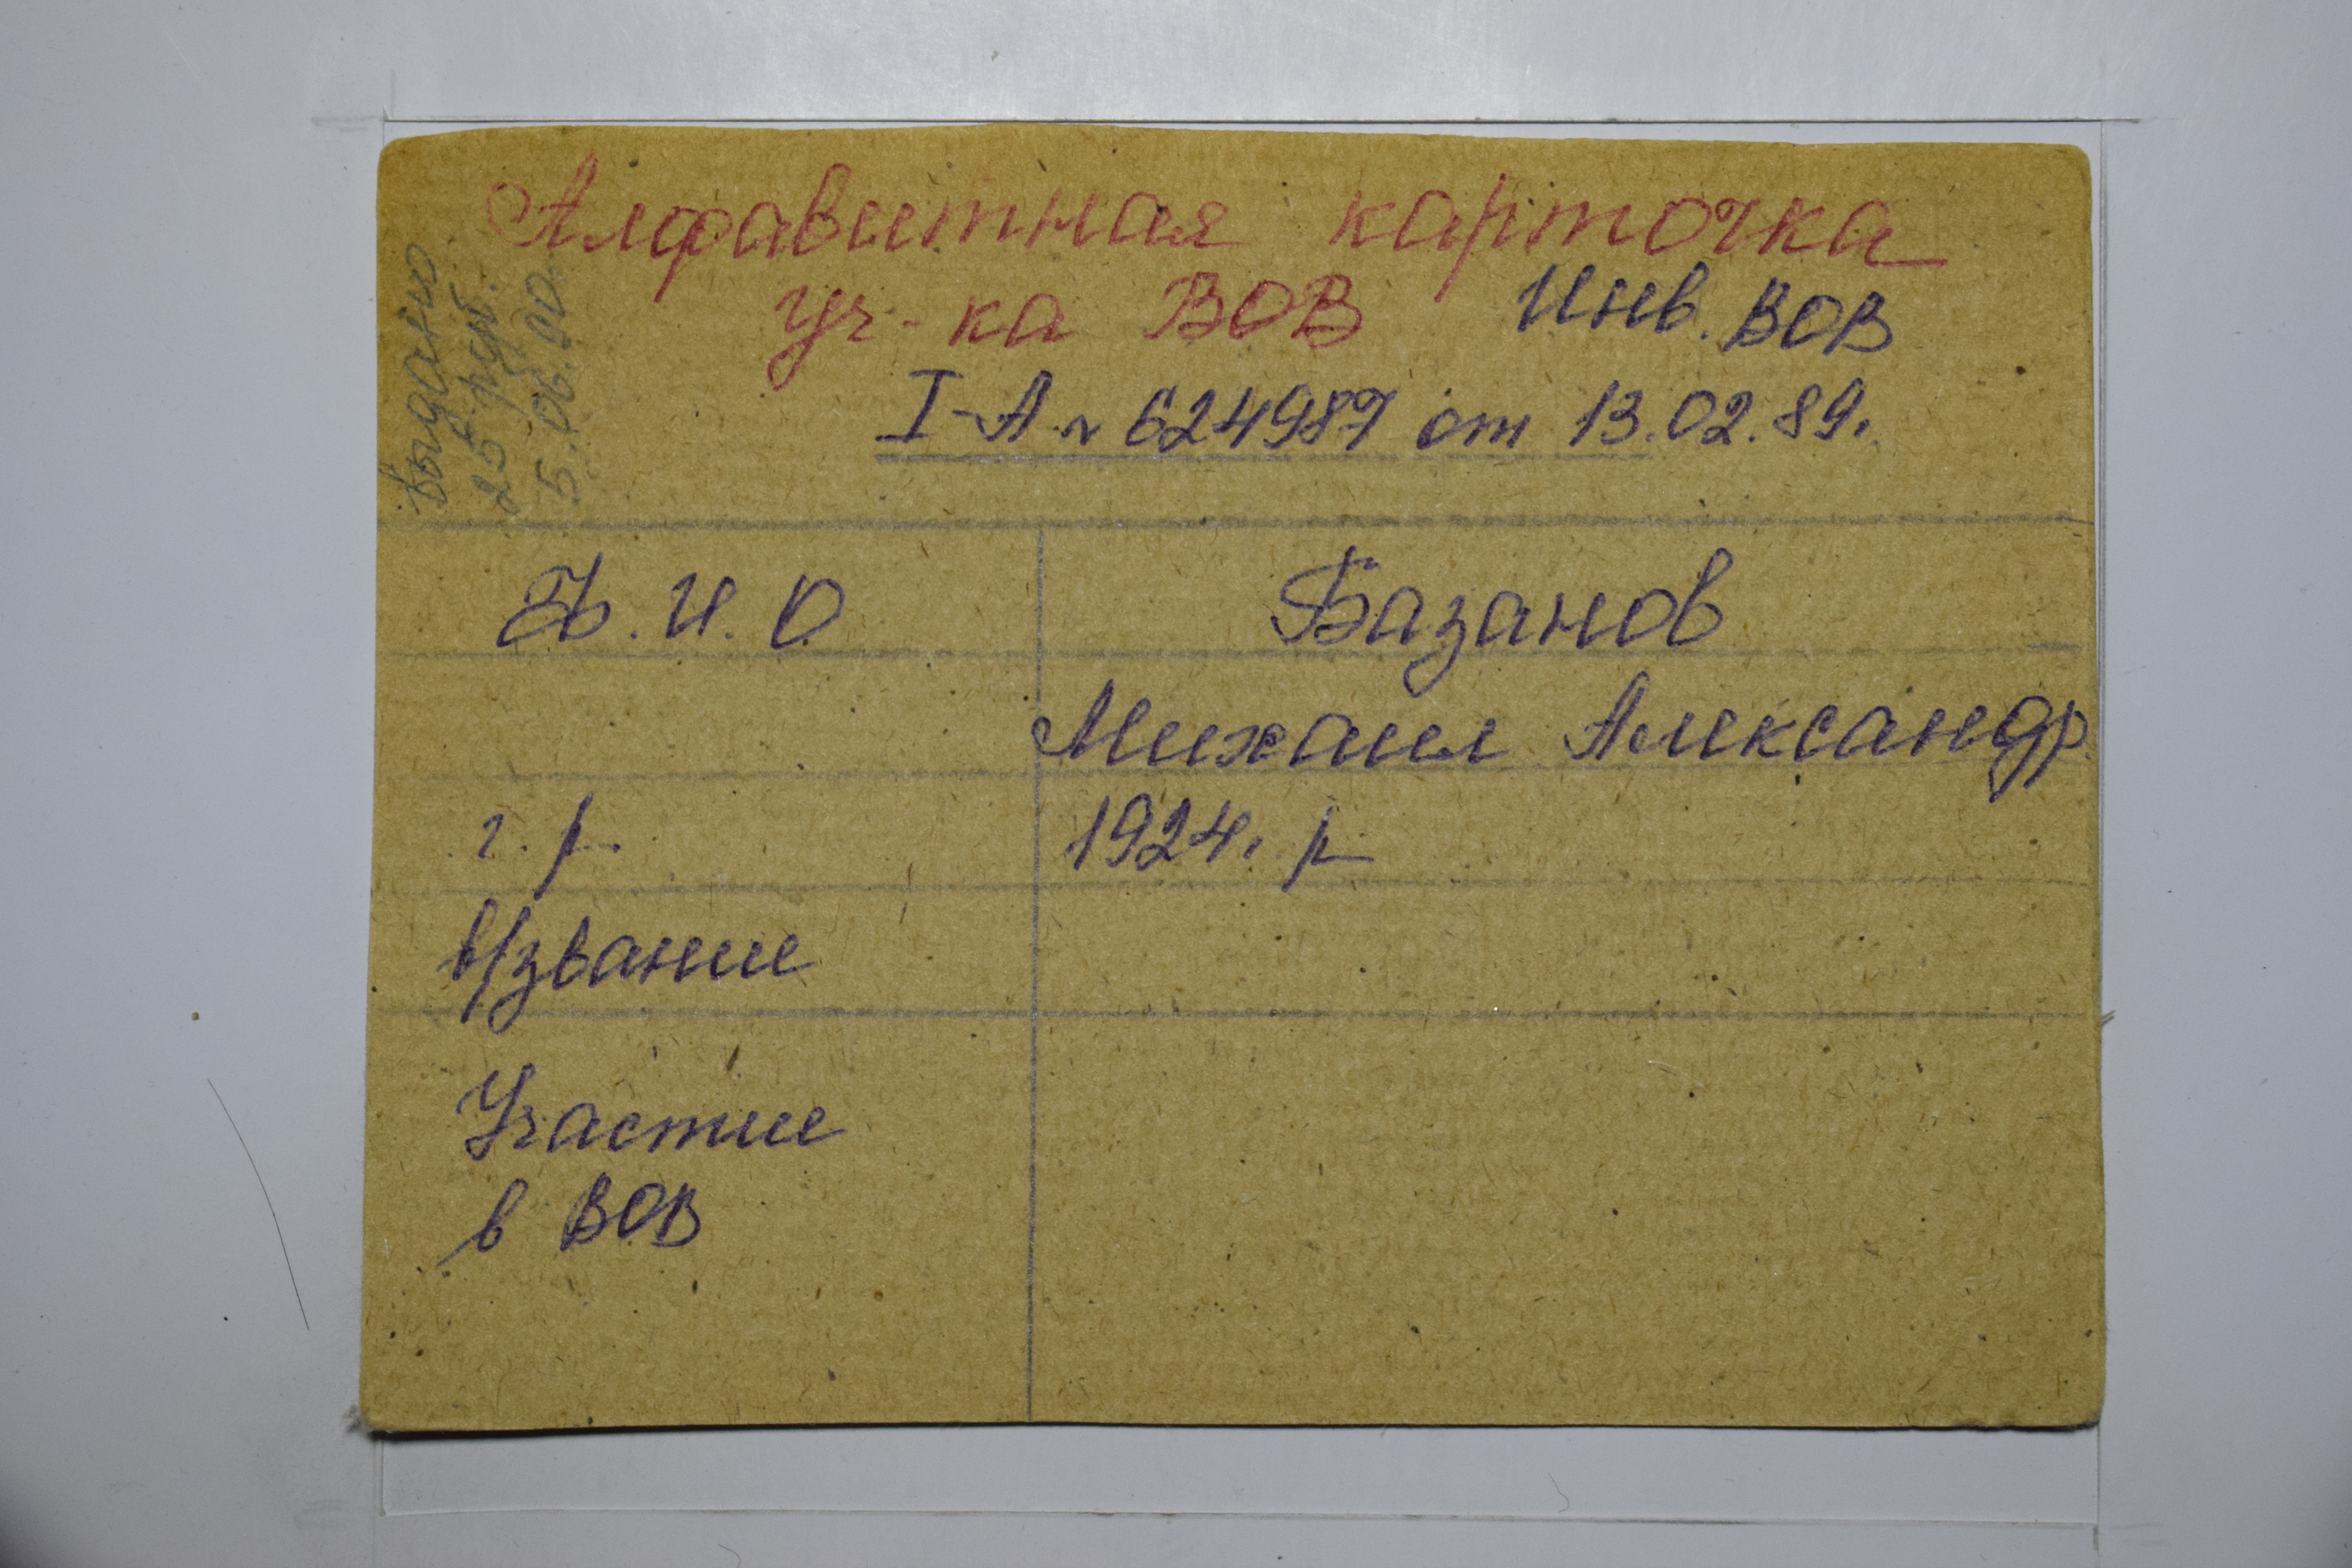 Алфавитная карточка
уч-ка ВОВ Инв. ВОВ
I-А № 624987 от 13.02.89г.
Выдано
25 руб.
5.06.00.
Ф.И.О Базанов
Михаил Александр.
г.р. 1924г. р
в/звание
Участие
в ВОВ